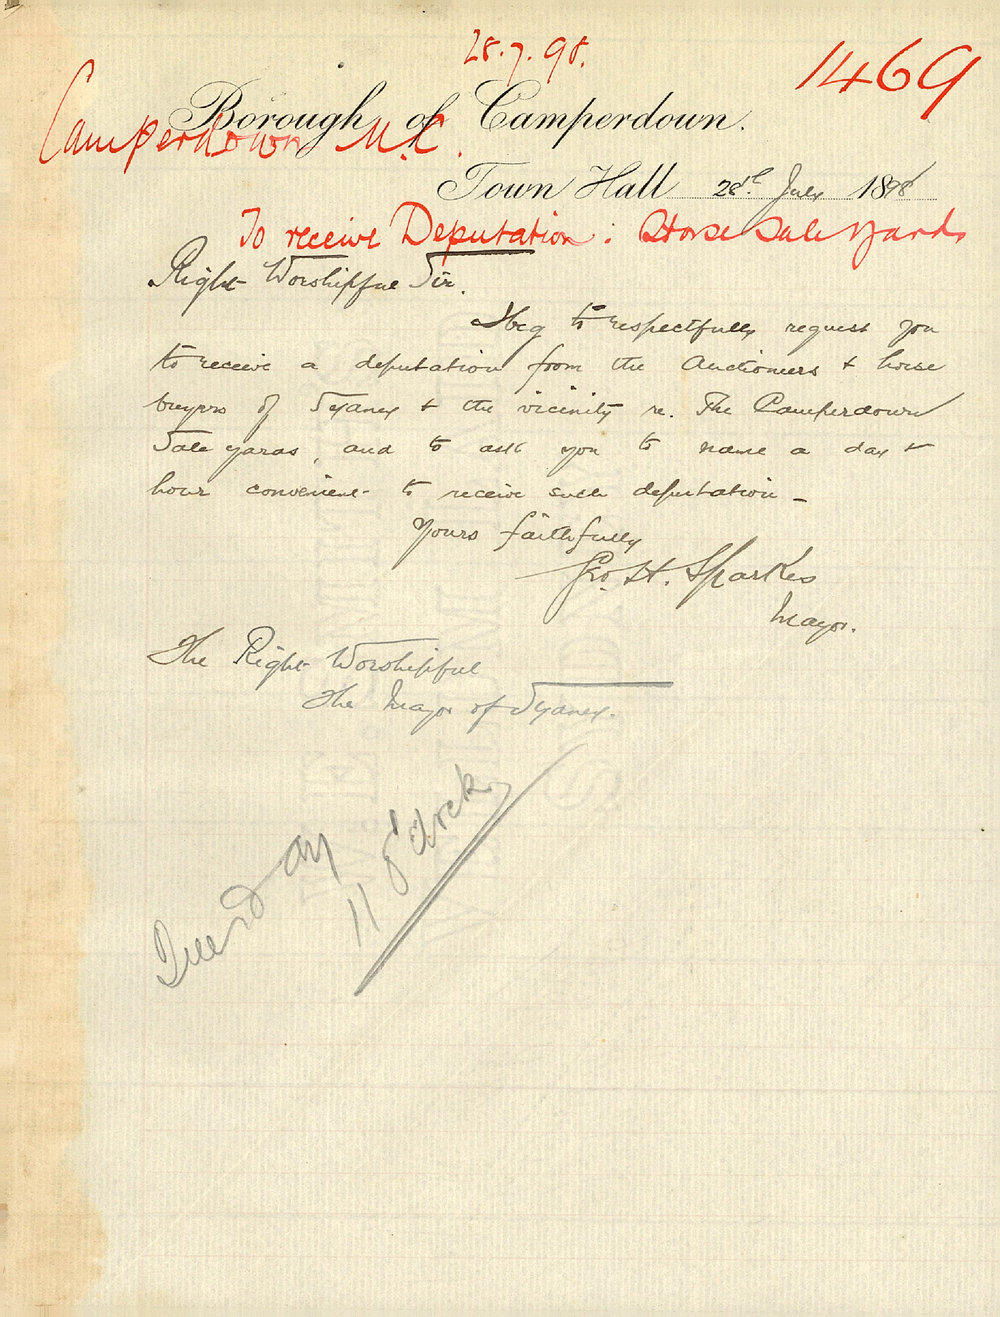 28.7.98.
1469
Borough of Camperdown.
Camperdown M.C.
Town Hall 28th July 1898
To receive Deputation: Horse Sale Yards
Right Worshipful Sir.
I beg to respectfully request you
to receive a deputation from the Auctioneers & horse
buyers of Sydney & the vicinity re. The Camperdown
Sale yards, and to ask you to name a day &
hour convenient to receive such deputation –
Yours faithfully
Geo. H. Sparkes
Mayor.
The Right Worshipful
The Mayor of Sydney.
Tuesday
11 o'clock